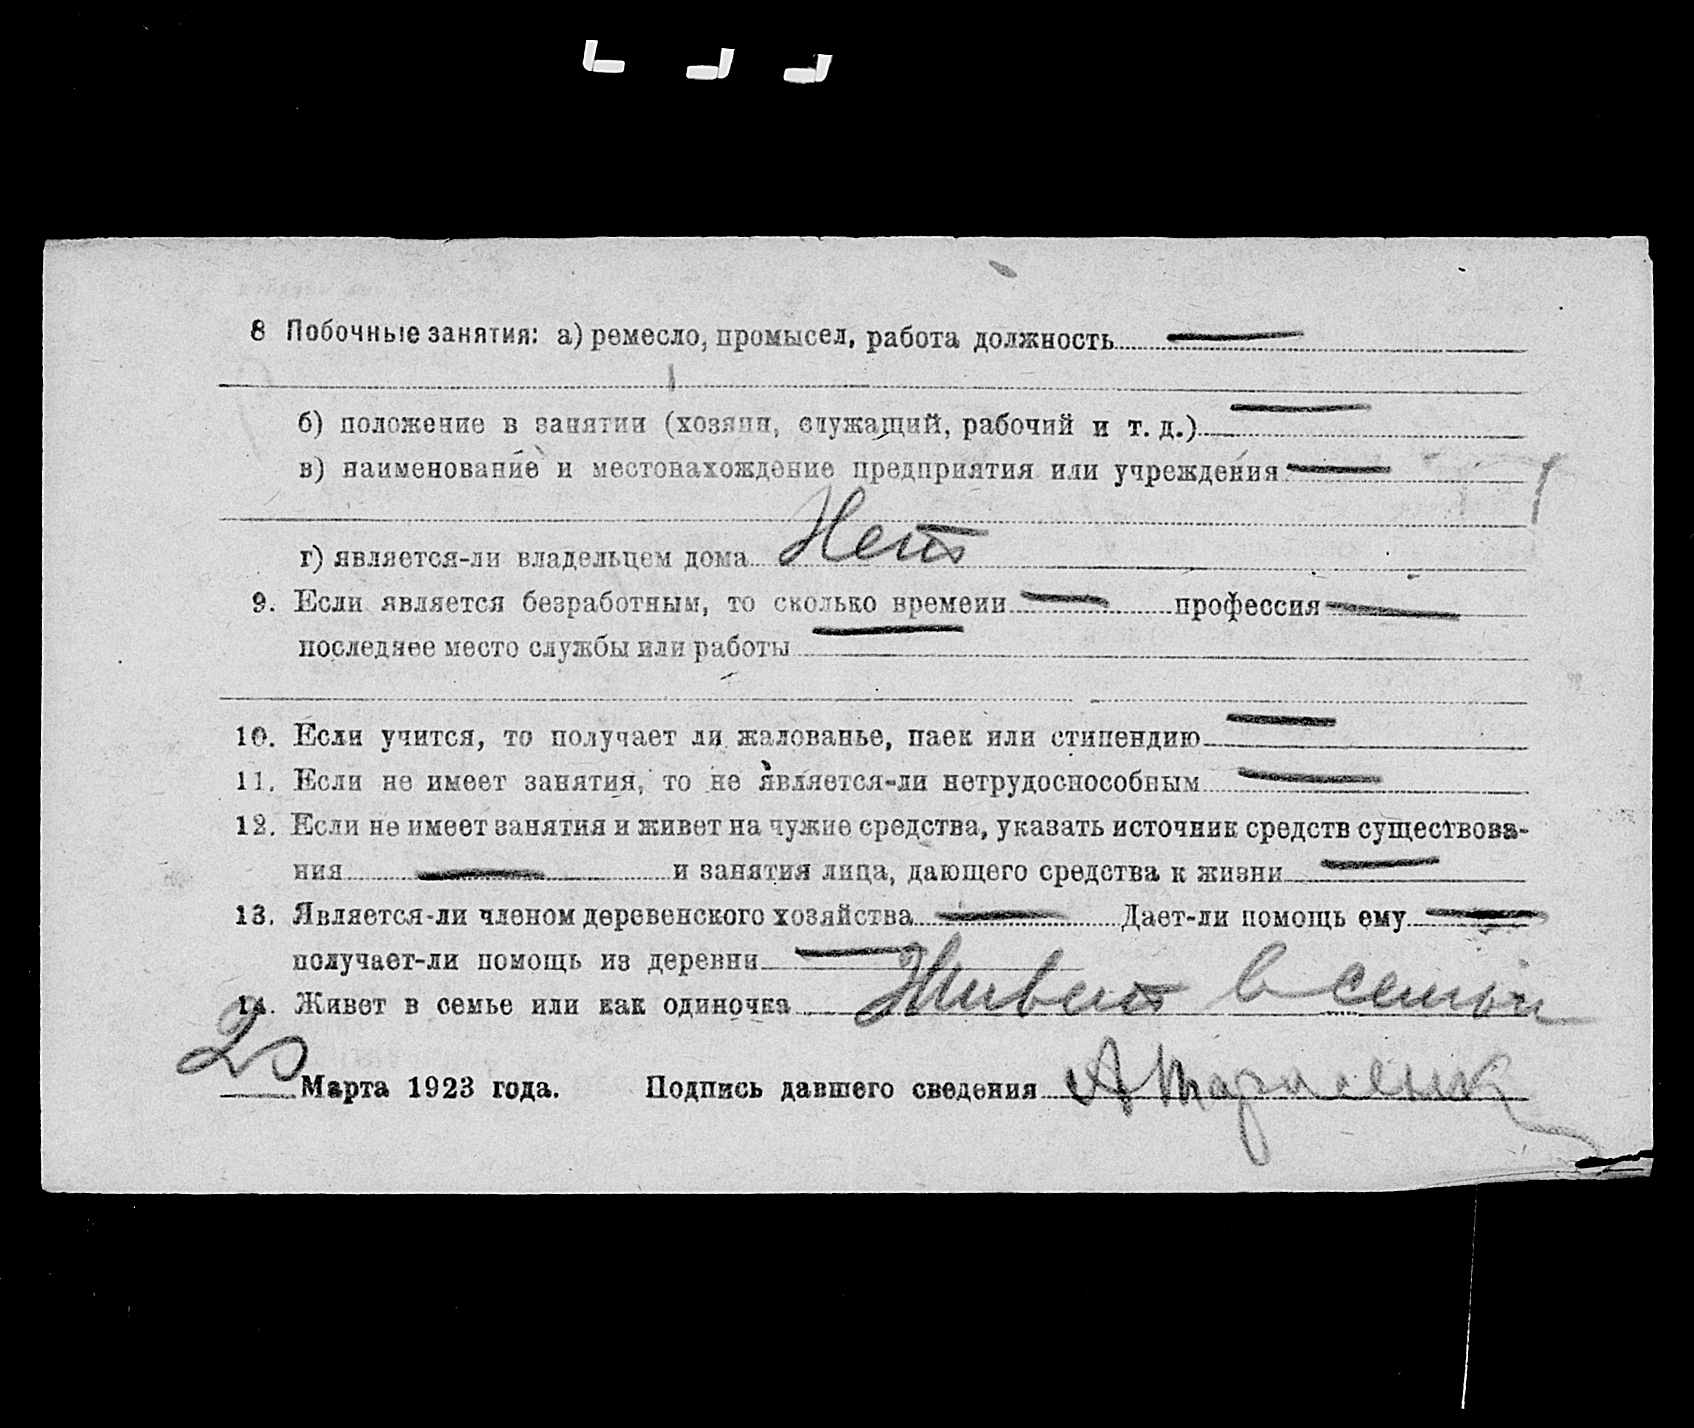 8 Побочные занятия: а) ремесло, промысел, работа должность —
б) положение в занятии (хозяин, служащий, рабочий и т. д.) —
в) наименование и местонахождение предприятия или учреждения —
г) является-ли владельцем дома Нет
9. Если является безработным, то сколько времени — профессия —
последнее место службы или работы —
10. Если учится, то получает ли жалованье, паек или стипендию —
11. Если не имеет занятия, то не является-ли нетрудоспособным —
12. Если не имеет занятия и живет на чужие средства, указать источник средств существова-
ния — и занятия лица, дающего средства к жизни —
13. Является-ли членом деревенского хозяйства — Дает-ли помощь ему —
получает-ли помощь из деревни —
14. Живет в семье или как одиночка Живет в семьи
Марта 1923 года. Подпись давшего сведения